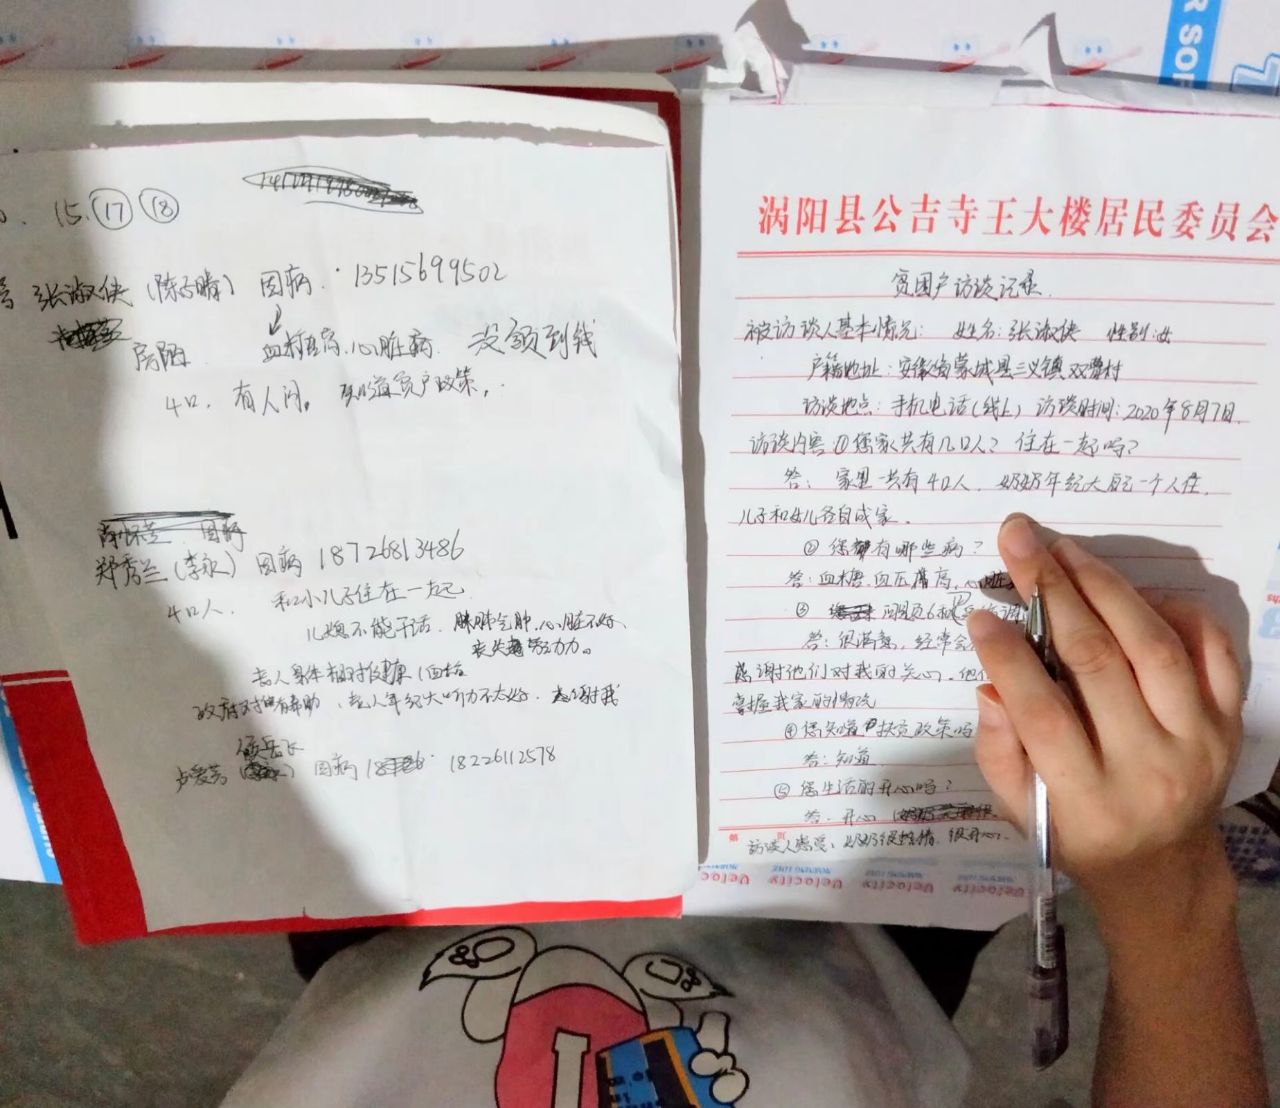 15. ⑰ ⑱
张淑侠（陈子晴） 因病. 13515699502
房阳 血糖高、心脏病. 没领到钱
4口. 有人问。 知道贫户政策.
郑秀兰（李永） 因病 18726813486
4口人. 和小儿子住在一起.
儿媳不能干话. 肺气肿、心脏不好、
丧失劳动力。
老人身体相对健康
政府对 有帮助、老人年纪大听力不太好. 感谢我
卢爱芳 因病 18226112578
涡阳县公吉寺王大楼居民委员会
贫困户访谈记录.
被访谈人基本情况: 姓名:张淑侠 性别:女
户籍地址:安徽省蒙城县三义镇双曹村
访谈地点:手机电话(线上) 访谈时间:2020年8月7日.
访谈内容①您家共有几口人? 住在一起吗?
答: 家里一共有4口人, 奶奶年纪大自己一个人住,
儿子和女儿各自成家.
②您有哪些病?
答:血糖、血压高、心脏
③
答:很满意, 经常会
感谢他们对我的关心. 他们
掌握我家的情况
④您知道扶贫政策吗
答:知道.
⑤您生活的开心吗?
答:开心
第 页
访谈人感受: 奶奶很热情, 很开心.
Velocity Velocity Velocity Velocity